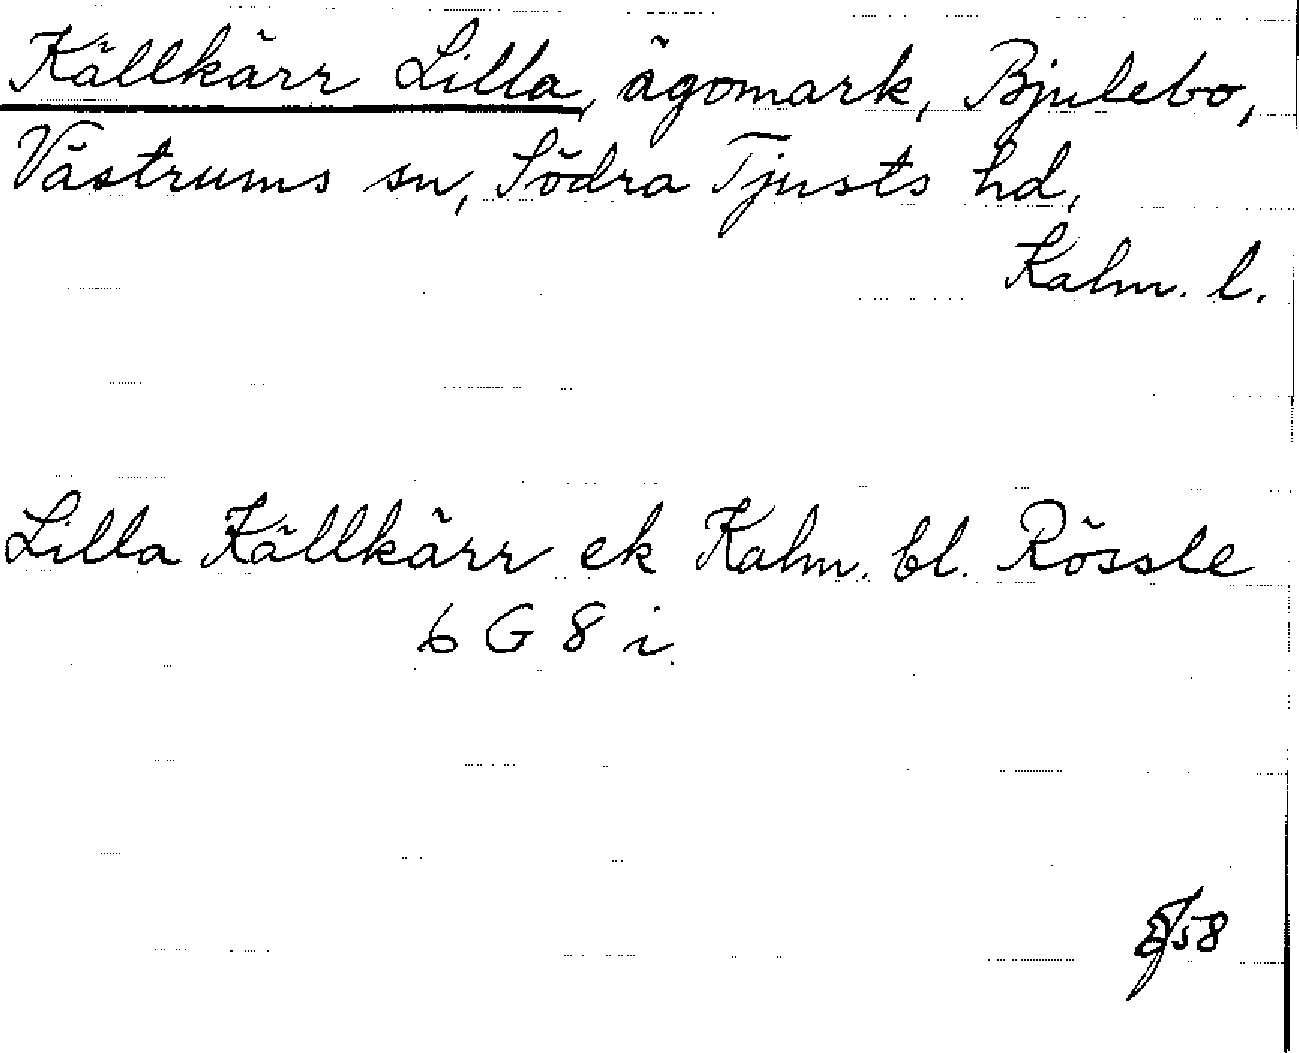 Källkärr Lilla, ägomark, Bjulebo,
Västrums sn, Södra Tjusts hd,
Kalm. l.
Lilla Källkärr ek Kalm. bl. Rössle
6 G 8 i
58